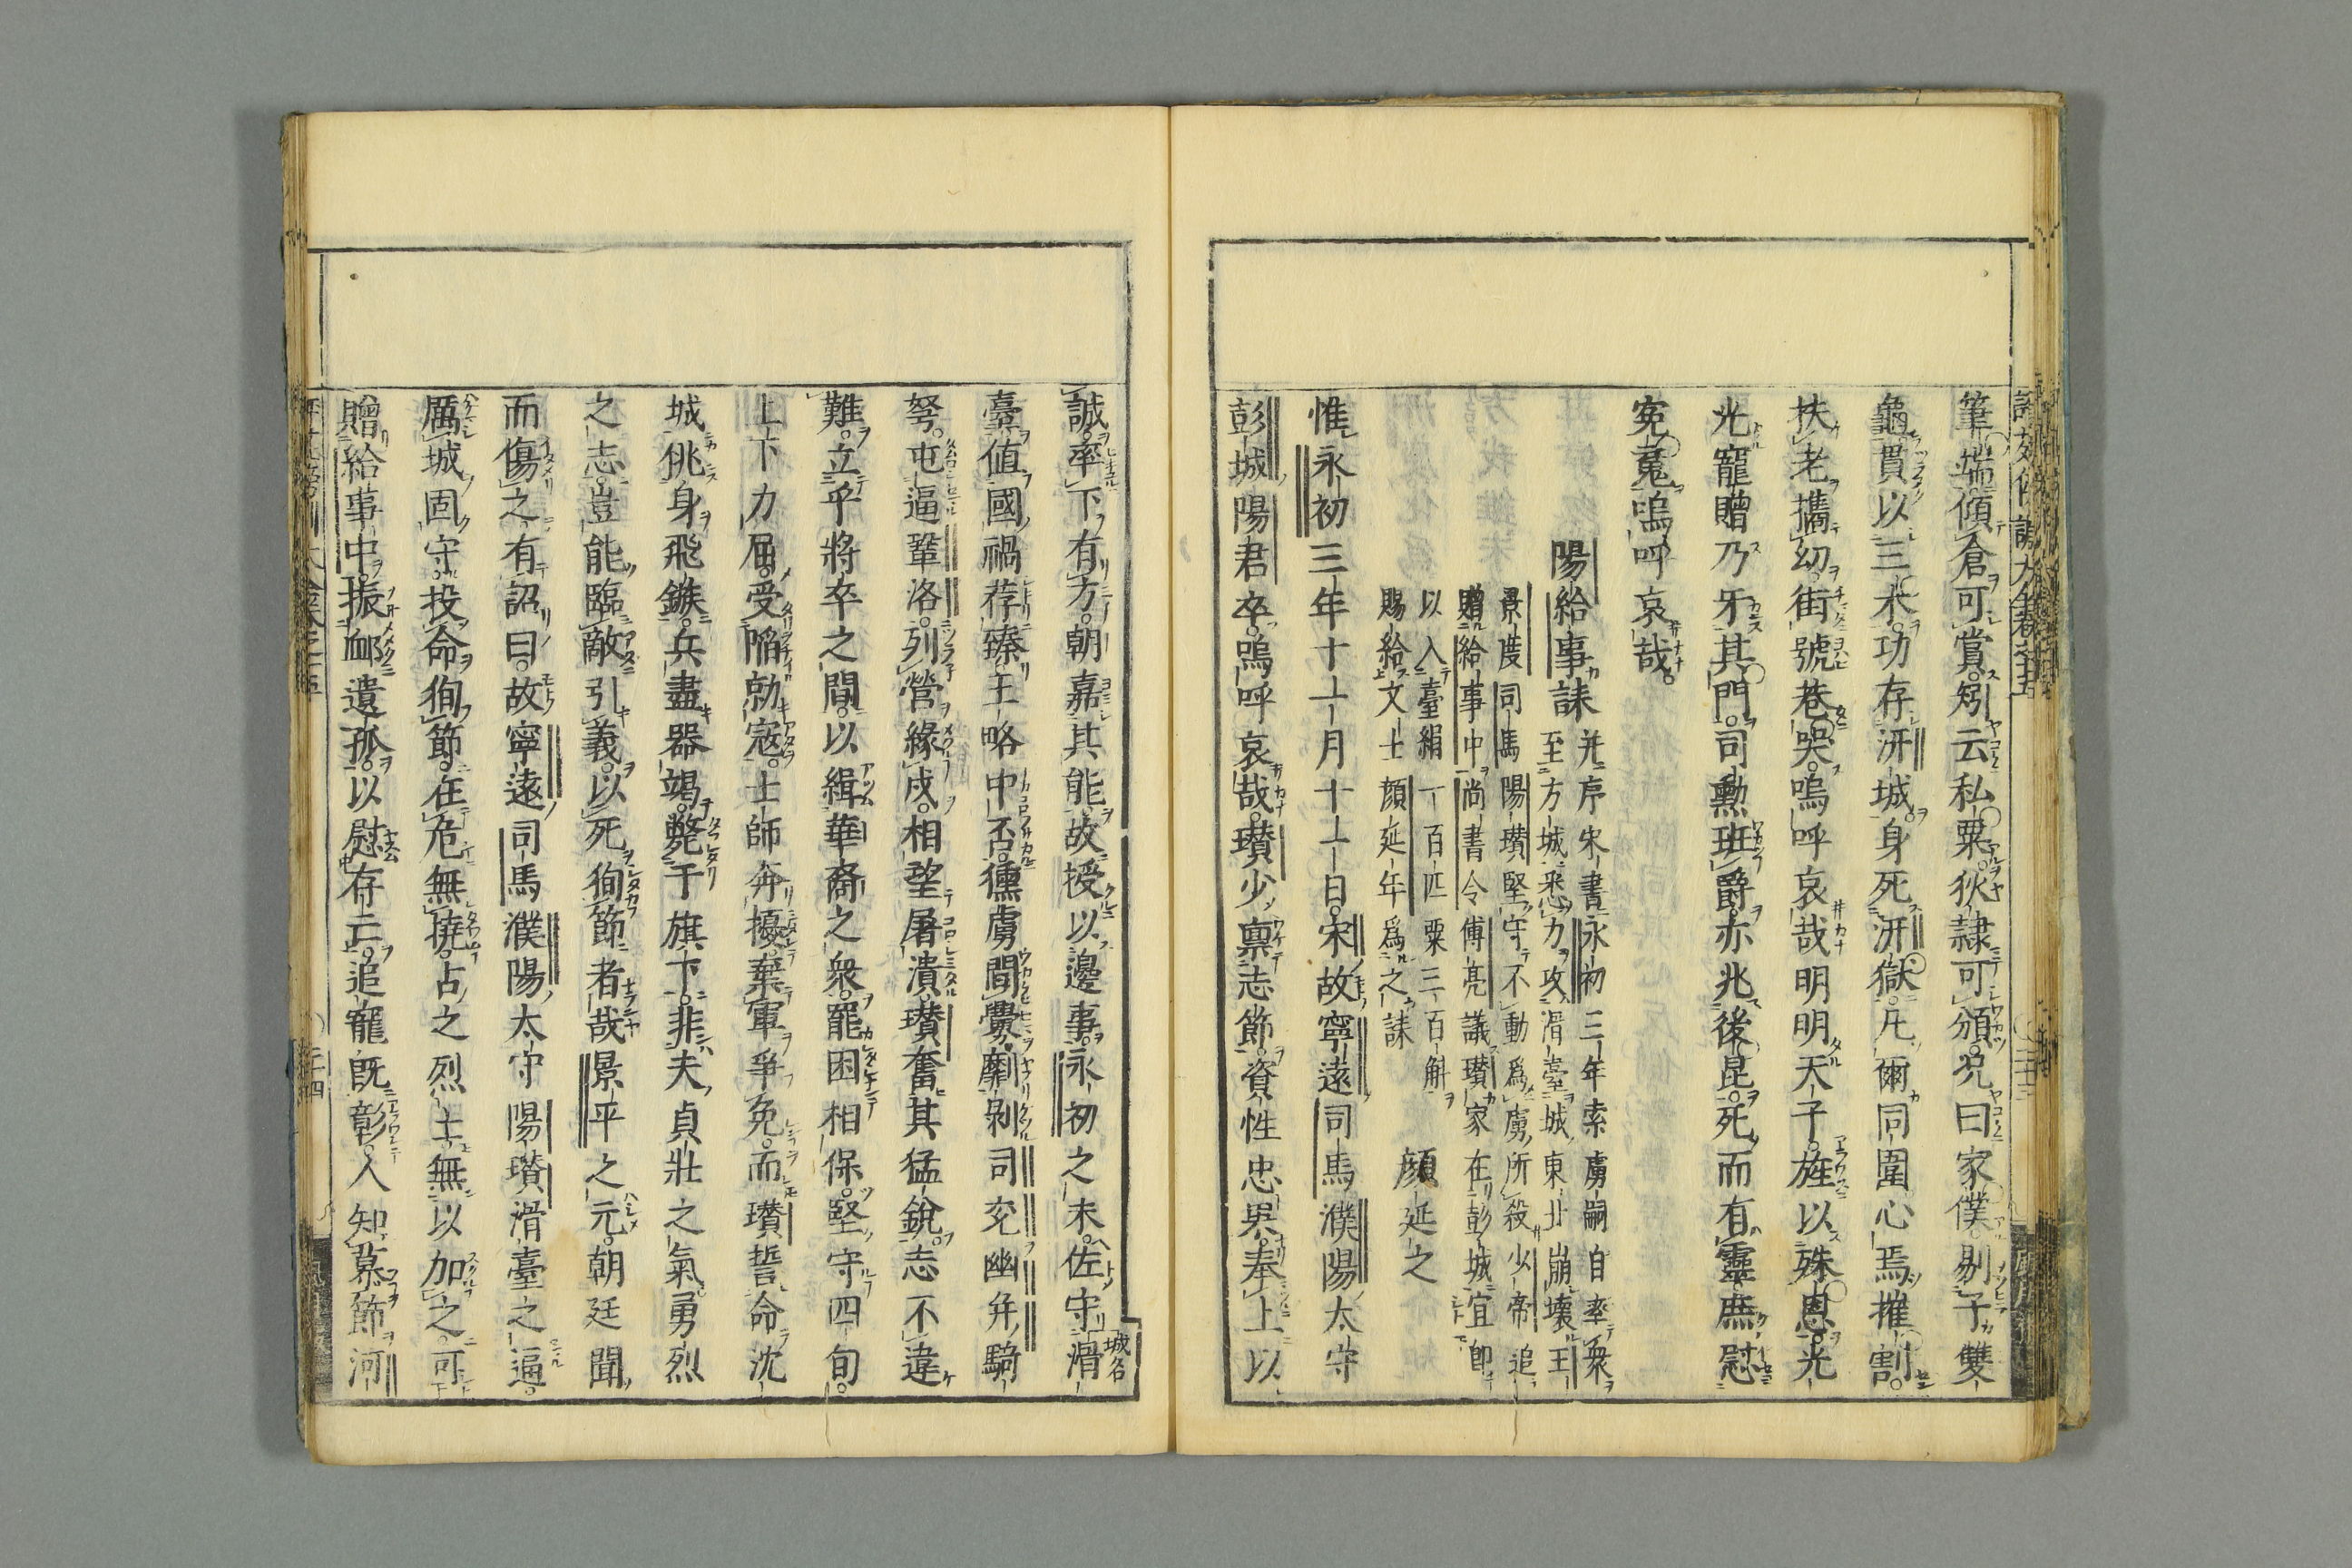 筆端傾倉可賞矧云私粟狄隷可頒況曰家僕剔子雙
龜貫以三木功存汧城身死汧獄凡爾同圍心焉摧割
扶老攜幼街號巷哭嗚呼哀哉明明天子旌以殊恩光
光寵贈乃牙其門司勳班爵亦兆後昆死而有靈庶慰
冤魂嗚呼哀哉
陽給事誄
并序宋書永初三年索虜嗣自率衆
至方城悉力攻滑臺城東北崩壞王
景度司馬陽瓚堅守不動為虜所殺少帝追
贈給事中尚書令傅亮議瓚家在彭城宜即
以入臺絹一百匹粟三百斛
賜給文士顏延年為之誄
顏延之
惟永初三年十一月十一日宋故寧遠司馬濮陽太守
彭城陽君卒嗚呼哀哉瓚少稟志節資性忠果奉上以
誠率下有方朝嘉其能故授以邊事永初之末佐守滑
城名
臺值國禍荐臻王略中否獯虜間釁劘剝司兗幽并騎
弩屯逼鞏洛列營緣戍相望屠潰瓚奮其猛銳志不違
難立乎將卒之間以緝華裔之衆罷困相保堅守四旬
上下力屈受陷勍寇士師奔擾棄軍爭免而瓚誓命沈
城佻身飛鏃兵盡器竭斃于旗下非夫貞壯之氣勇烈
之志豈能臨敵引義以死徇節者哉景平之元朝廷聞
而傷之有詔曰故寧遠司馬濮陽太守陽瓚滑臺之逼
厲城固守投命徇節在危無撓古之烈士無以加之可
贈給事中振衂遺孤以慰存亡追寵既彰人知慕節河